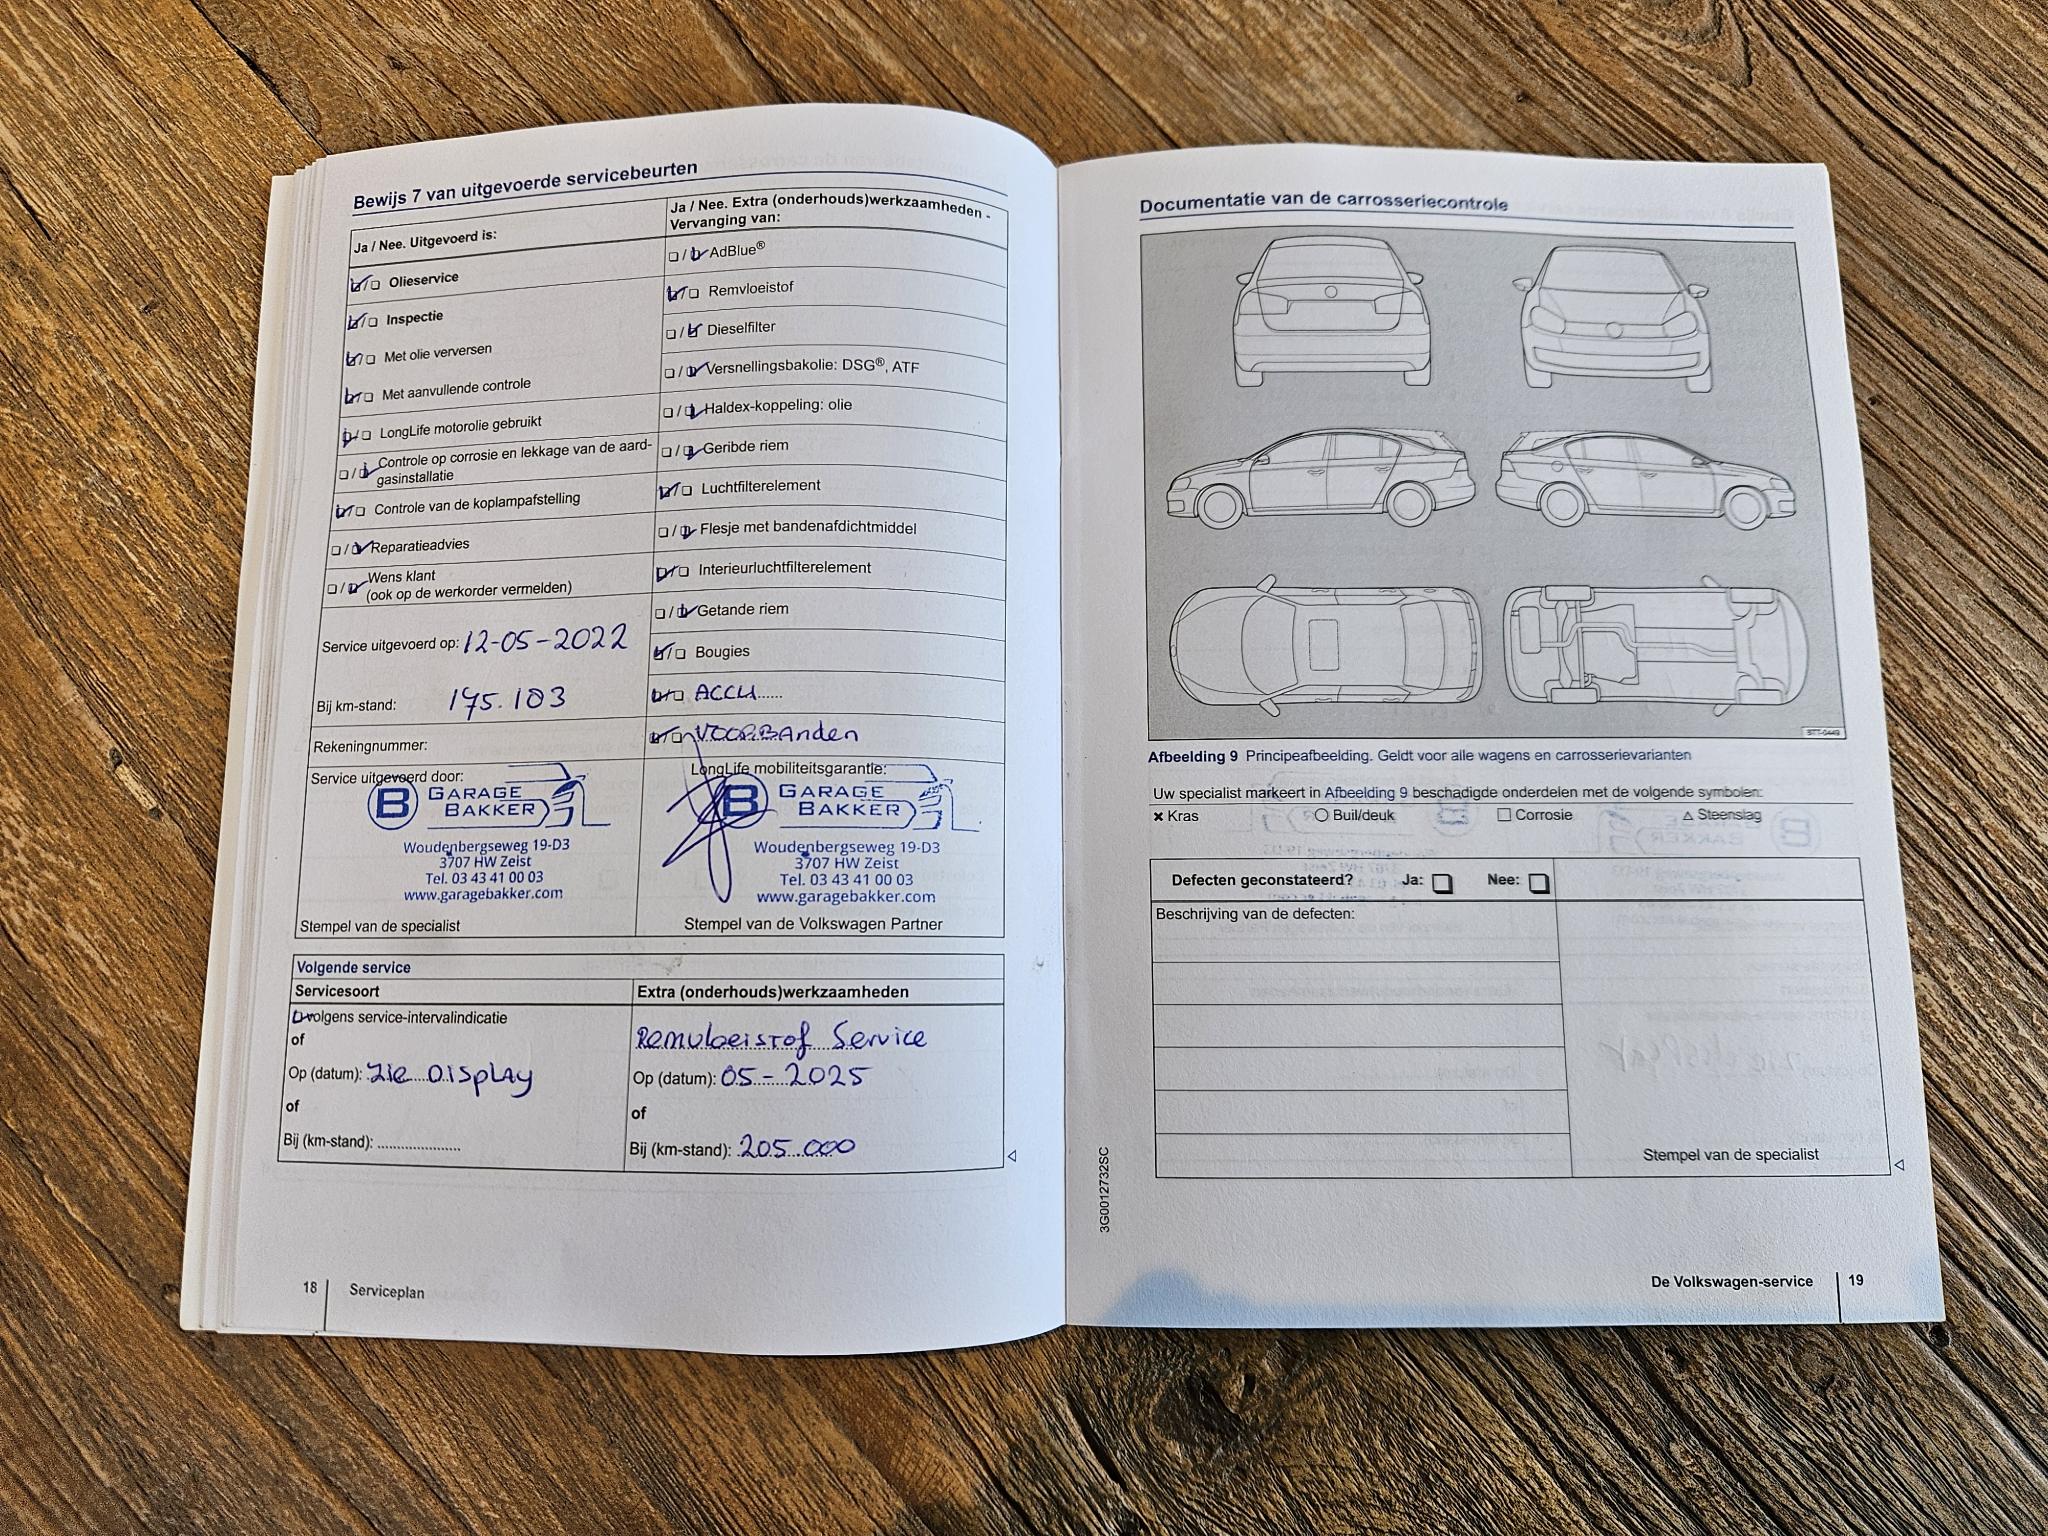 Bewijs 7 van uitgevoerde servicebeurten
Ja / Nee. Uitgevoerd is:
Olieservice
Inspectie
Met olie verversen
Met aanvullende controle
LongLife motorolie gebruikt
Controle op corrosie en lekkage van de aard-
gasinstallatie
Controle van de koplampafstelling
Reparatieadvies
Wens klant
(ook op de werkorder vermelden)
Service uitgevoerd op: 12-05-2022
Bij km-stand: 175.103
Rekeningnummer:
Ja / Nee. Extra (onderhouds)werkzaamheden -
Vervanging van:
AdBlue®
Remvloeistof
Dieselfilter
Versnellingsbakolie: DSG®, ATF
Haldex-koppeling: olie
Geribde riem
Luchtfilterelement
Flesje met bandenafdichtmiddel
Interieurluchtfilterelement
Getande riem
Bougies
ACCU......
VOORBAnden
Service uitgevoerd door:
B GARAGE
BAKKER
Woudenbergseweg 19-D3
3707 HW Zeist
Tel. 03 43 41 00 03
www.garagebakker.com
Stempel van de specialist
LongLife mobiliteitsgarantie:
B GARAGE
BAKKER
Woudenbergseweg 19-D3
3707 HW Zeist
Tel. 03 43 41 00 03
www.garagebakker.com
Stempel van de Volkswagen Partner
Volgende service
Servicesoort
volgens service-intervalindicatie
of
Op (datum): zie DISPLAY
of
Bij (km-stand): ....................
Extra (onderhouds)werkzaamheden
Remvloeistof Service
Op (datum): 05-2025
of
Bij (km-stand): 205.000
18 Serviceplan
Documentatie van de carrosseriecontrole
BTT-0449
Afbeelding 9 Principeafbeelding. Geldt voor alle wagens en carrosserievarianten
Uw specialist markeert in Afbeelding 9 beschadigde onderdelen met de volgende symbolen:
× Kras ○ Buil/deuk □ Corrosie △ Steenslag
Defecten geconstateerd? Ja: Nee:
Beschrijving van de defecten:
Stempel van de specialist
3G0012732SC
De Volkswagen-service 19